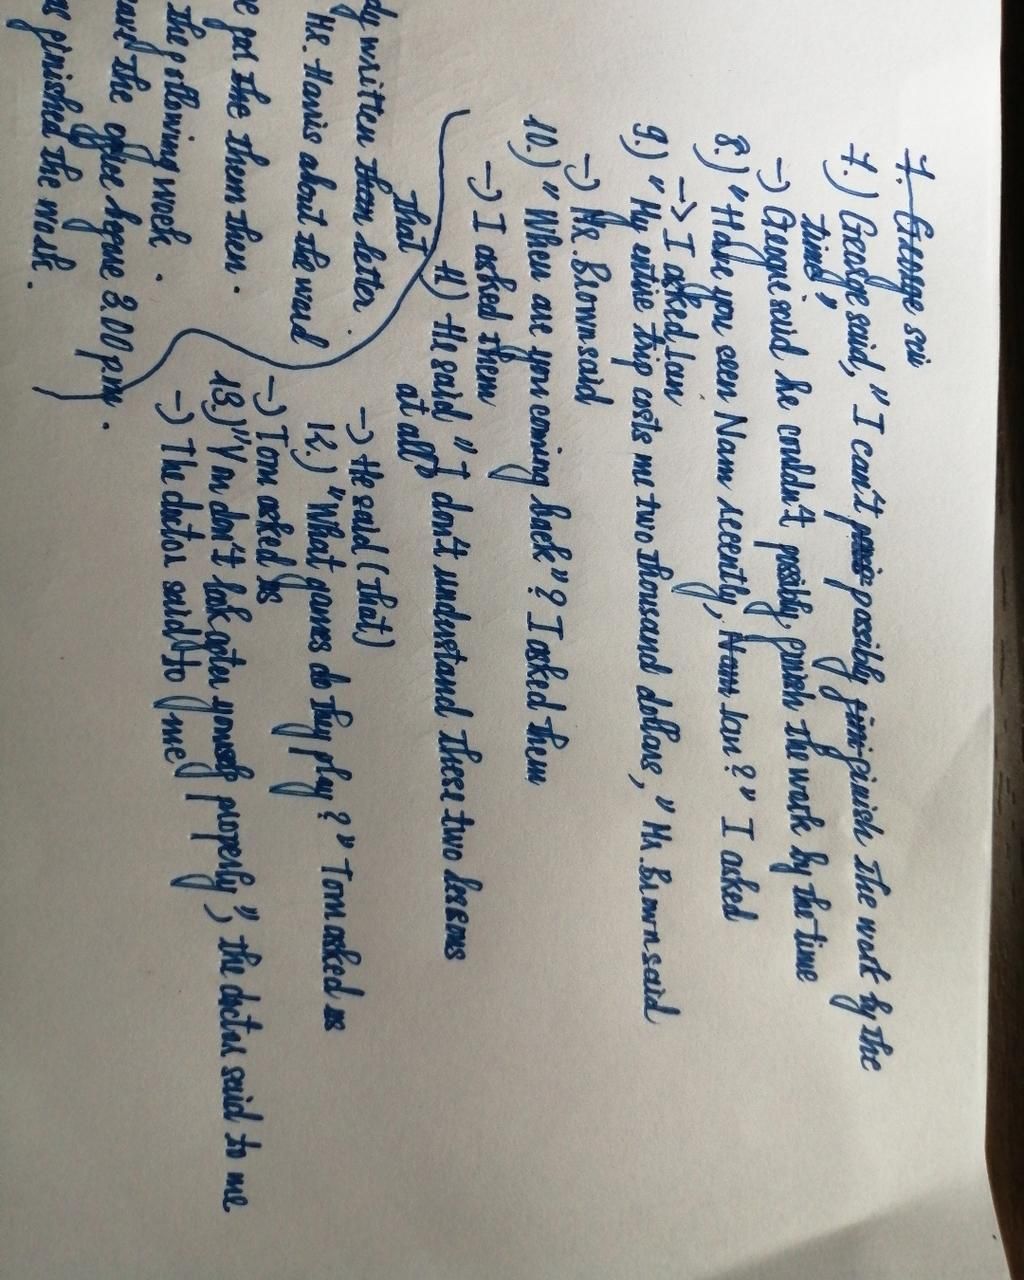 7. George sai
7.) George said, "I can't possibly finish the work by the
time"
-) George said he couldn't possibly finish the work by the time
8.) "Have you seen Nam recently, Nam Lan?" I asked
-) I asked Lan
9.) "My entire trip costs me two thousand dollars," Mr. Brown said
-) Mr. Brown said
10.) "When are you coming back"? I asked them
-) I asked them
11) He said "I don't understand these two lessons
at all"
-) He said (that)
12.) "What games do they play?" Tom asked us
-) Tom asked us
13.) "You don't look after yourself properly", the doctor said to me
-) The doctor said to me
that
dy written them letter.
Mr. Harris about the word
the them then.
the following week.
the office before 3.00 p.m.
as finished the work.